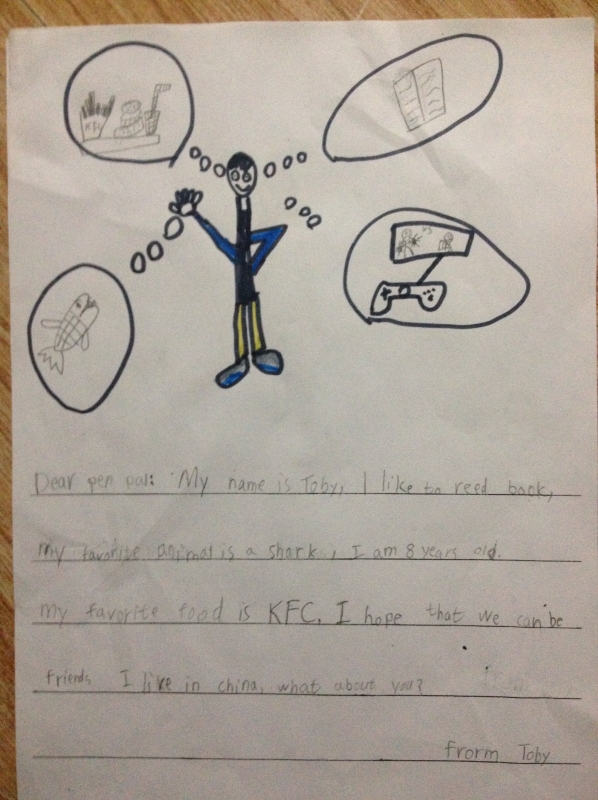 KFC
VS
Dear pen pal: My name is Toby, I like to reed book,
my favorite animal is a shark, I am 8 years old.
my favorite food is KFC. I hope that we can be
friends I like in china, what about you?
frorm Toby